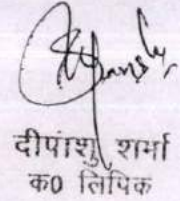 दीपांशु शर्मा
क0 लिपिक